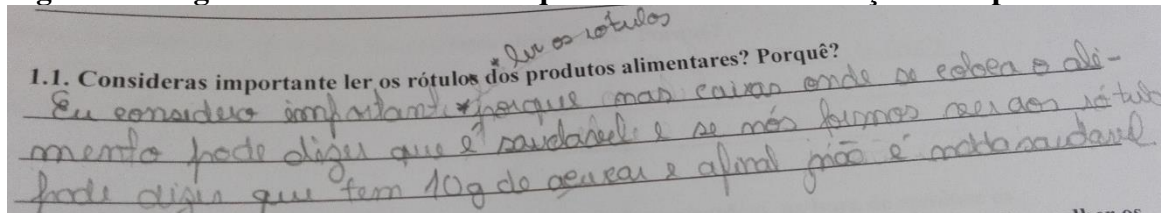 * ler os rótulos
1.1. Consideras importante ler os rótulos dos produtos alimentares? Porquê?
Eu considero important *porque nas caixas onde se coloca o ali-
mento pode dizer que é saudável e se nós formos aos rótulo
pode dizer que tem 10g de açucar e afinal não é nada saudavel